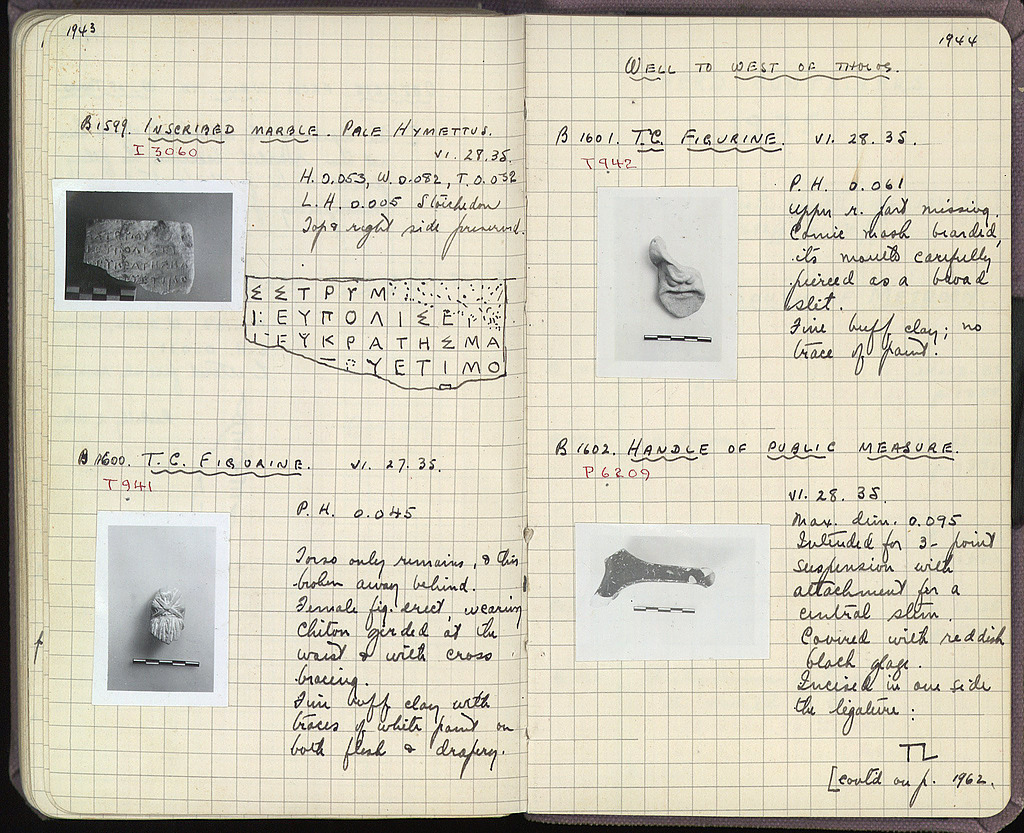 1943
B 1599. INSCRIBED MARBLE. PALE HYMETTUS.
I 3060
VI. 28. 35.
H. 0.053, W. 0.082, T. 0.032
L. H. 0.005 Stoichedon
Top & right side preserved.
Σ Σ Τ Ρ Υ Μ
Ι Ε Υ Π Ο Λ Ι Σ Ε Ι
Ι Ε Υ Κ Ρ Α Τ Η Σ Μ Α
Υ Ε Τ Ι Μ Ο
B 1600. T.C. FIGURINE. VI. 27. 35.
T 941
P. H. 0.045
Torso only remains, & this
broken away behind.
Female fig. erect, wearing
chiton girded at the
waist & with cross
bracing.
Fine buff clay with
traces of white paint on
both flesh & drapery.
1944
WELL TO WEST OF THOLOS.
B 1601. T.C. FIGURINE. VI. 28. 35.
T 942
P. H. 0.061
Upper r. part missing.
Comic mask bearded,
its mouth carefully
pierced as a broad
slit.
Fine buff clay; no
trace of paint.
B 1602. HANDLE OF PUBLIC MEASURE.
P 6209
VI. 28. 35.
Max. dim. 0.095
Intended for 3-point
suspension with
attachment for a
central stem.
Covered with reddish
black glaze.
Incised in one side
the ligature:
[contd on p. 1962.